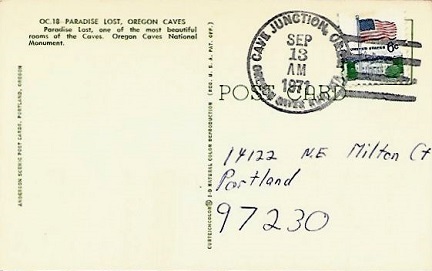 OC.18 PARADISE LOST, OREGON CAVES
Paradise Lost, one of the most beautiful
rooms of the Caves. Oregon Caves National
Monument.
ANDERSON SCENIC POST CARDS, PORTLAND, OREGON
CURTEICHCOLOR® 3-D NATURAL COLOR REPRODUCTION (REG. U.S.A. PAT. OFF.)
POST CARD
CAVE JUNCTION, OREG.
SEP
13
AM
RIVER
UNITED STATES 6c
14122 N.E Milton Ct
Portland
97230